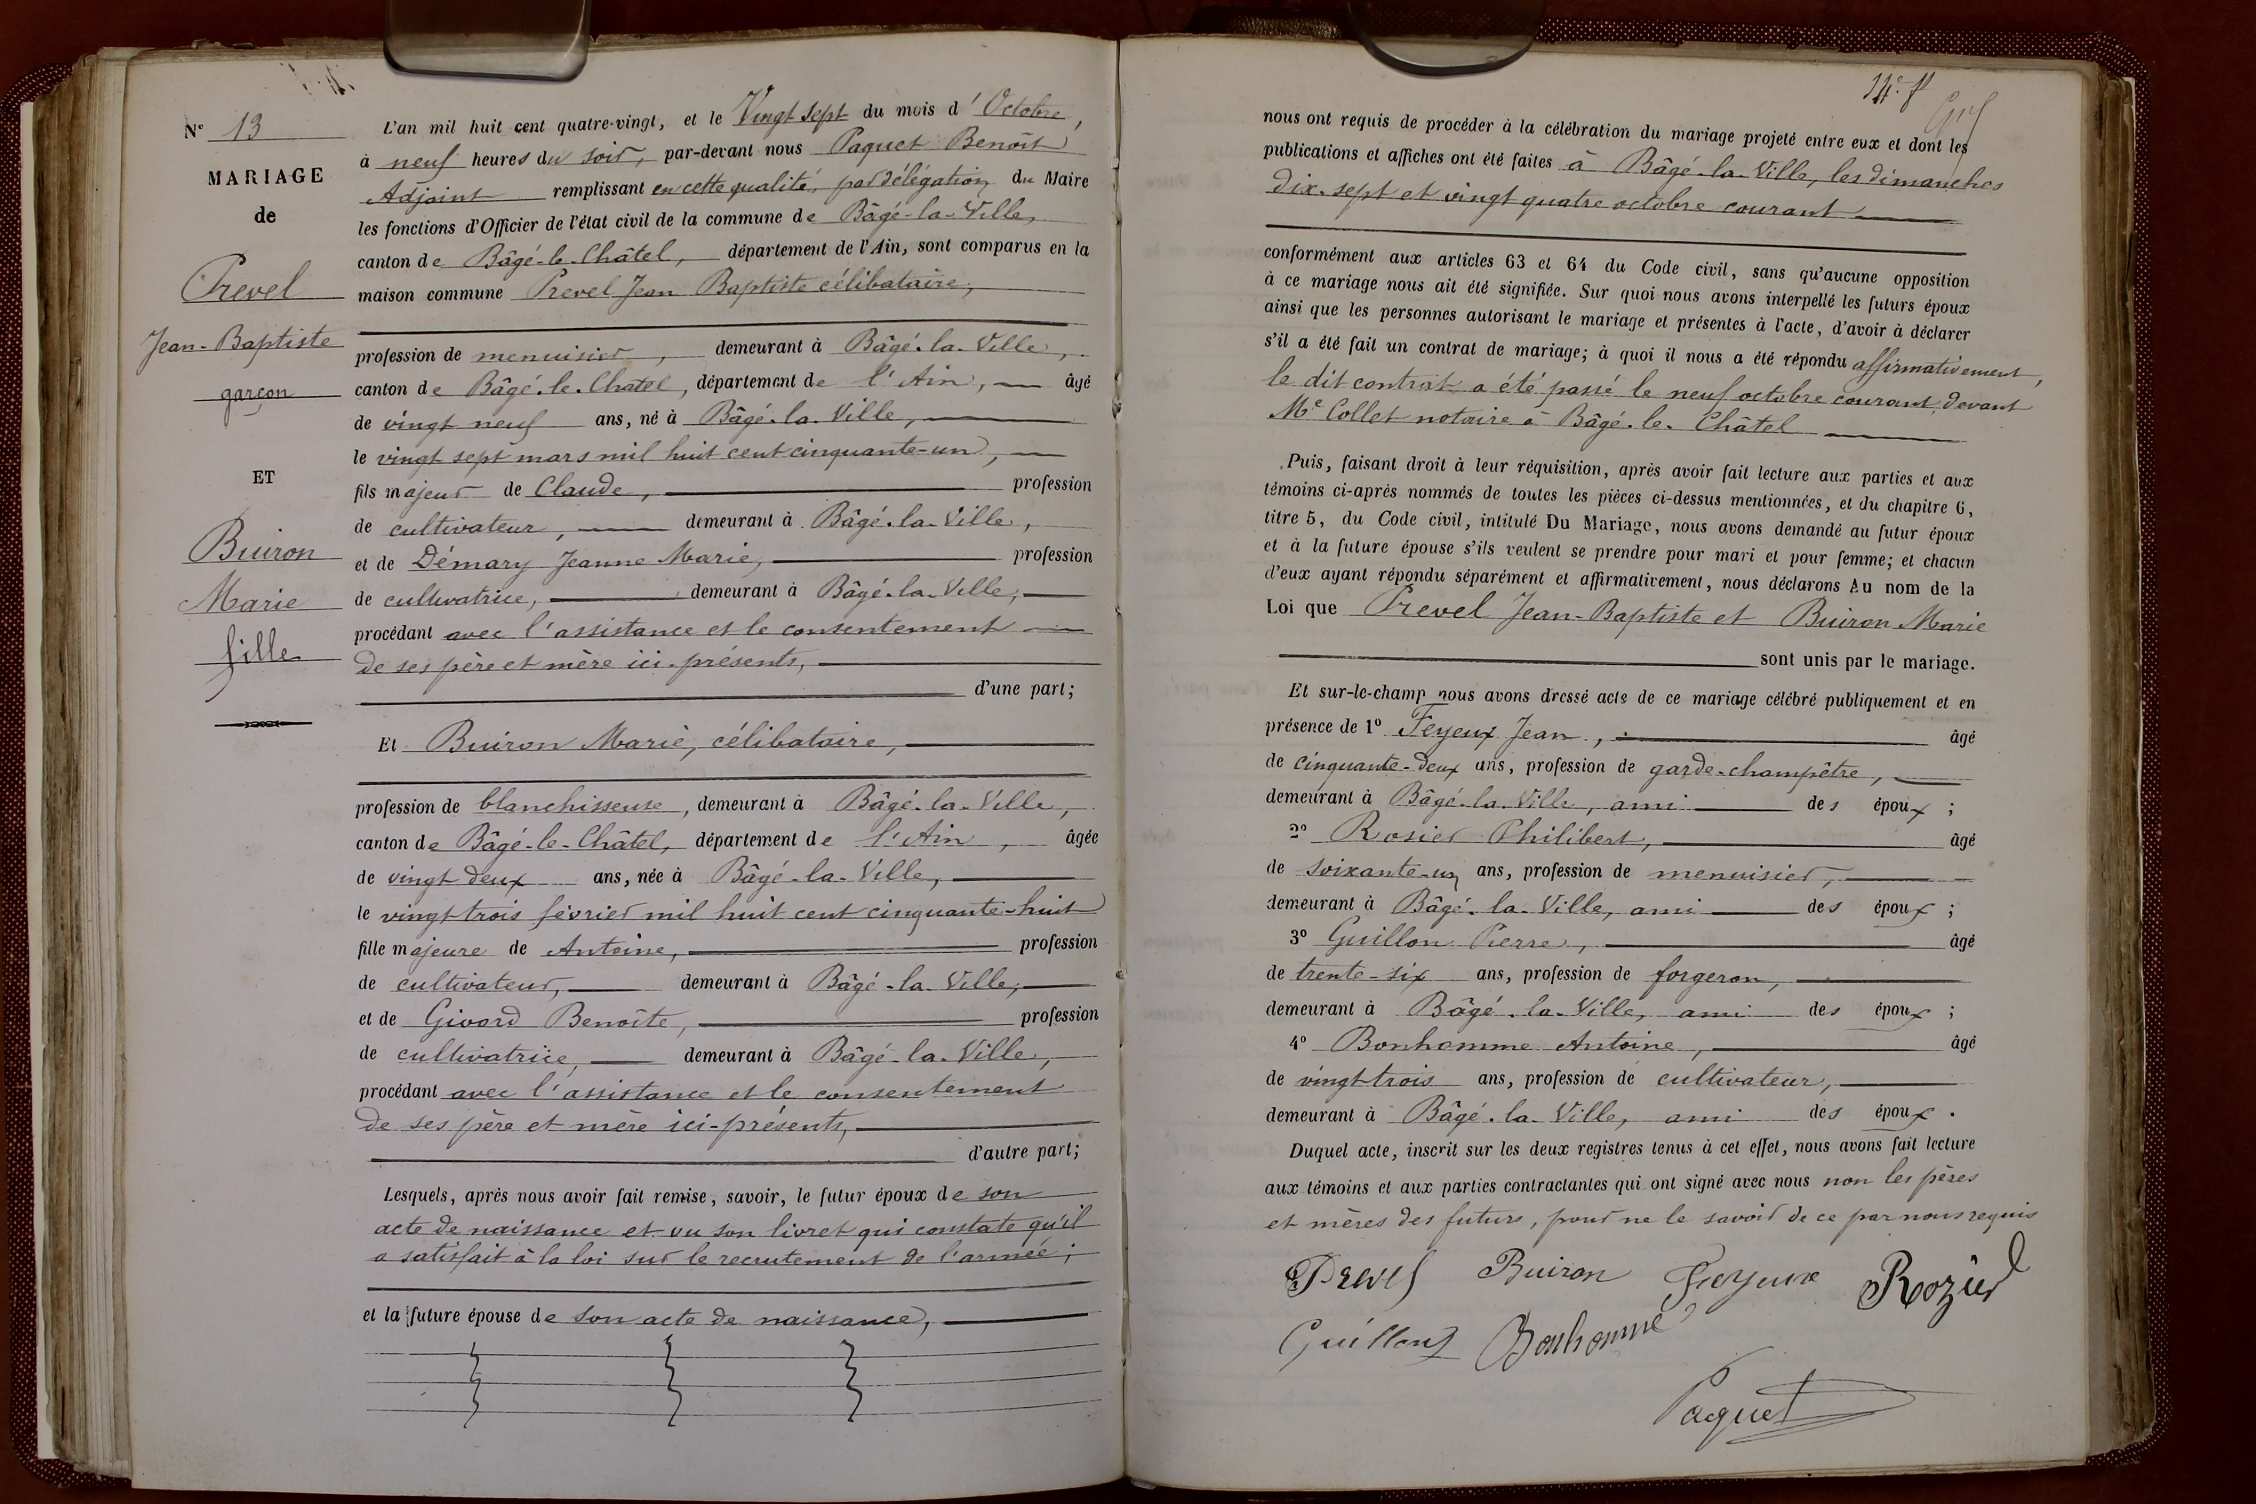 N° 13
MARIAGE
de
Prevel
Jean-Baptiste
garçon
ET
Buiron
Marie
fille
L'an mil huit cent quatre-vingt, et le Vingt sept du mois d'Octobre,
à neuf heures du soir, par-devant nous Paquet Benoît
Adjoint remplissant en cette qualité, par délégation du Maire
les fonctions d'Officier de l'état civil de la commune de Bâgé-la-Ville,
canton de Bâgé-le-Châtel, département de l'Ain, sont comparus en la
maison commune Prevel Jean Baptiste célibataire,
profession de menuisier, demeurant à Bâgé-la-Ville,
canton de Bâgé-le-Châtel, département de l'Ain, âgé
de vingt neuf ans, né à Bâgé-la-Ville,
le vingt sept mars mil huit cent cinquante-un,
fils majeur de Claude, profession
de cultivateur, demeurant à Bâgé-la-Ville,
et de Démary Jeanne Marie, profession
de cultivatrice, demeurant à Bâgé-la-Ville,
procédant avec l'assistance et le consentement
de ses père et mère ici-présents,
d'une part;
Et Buiron Marie, célibataire,
profession de blanchisseuse, demeurant à Bâgé-la-Ville,
canton de Bâgé-le-Châtel, département de l'Ain, âgée
de vingt deux ans, née à Bâgé-la-Ville,
le vingt-trois février mil huit cent cinquante-huit
fille majeure de Antoine, profession
de cultivateur, demeurant à Bâgé-la-Ville,
et de Givord Benoîte, profession
de cultivatrice, demeurant à Bâgé-la-Ville,
procédant avec l'assistance et le consentement
de ses père et mère ici-présents,
d'autre part;
Lesquels, après nous avoir fait remise, savoir, le futur époux de son
acte de naissance et vu son livret qui constate qu'il
a satisfait à la loi sur le recrutement de l'armée;
et la future épouse de son acte de naissance,
14e f
nous ont requis de procéder à la célébration du mariage projeté entre eux et dont les
publications et affiches ont été faites à Bâgé-la-Ville, les dimanches
dix-sept et vingt quatre octobre courant
conformément aux articles 63 et 64 du Code civil, sans qu'aucune opposition
à ce mariage nous ait été signifiée. Sur quoi nous avons interpellé les futurs époux
ainsi que les personnes autorisant le mariage et présentes à l'acte, d'avoir à déclarer
s'il a été fait un contrat de mariage; à quoi il nous a été répondu affirmativement,
le dit contrat a été passé le neuf octobre courant, devant
Me Collet notaire à Bâgé-le-Châtel
Puis, faisant droit à leur réquisition, après avoir fait lecture aux parties et aux
témoins ci-après nommés de toutes les pièces ci-dessus mentionnées, et du chapitre 6,
titre 5, du Code civil, intitulé Du Mariage, nous avons demandé au futur époux
et à la future épouse s'ils veulent se prendre pour mari et pour femme; et chacun
d'eux ayant répondu séparément et affirmativement, nous déclarons Au nom de la
Loi que Prevel Jean-Baptiste et Buiron Marie
sont unis par le mariage.
Et sur-le-champ nous avons dressé acte de ce mariage célébré publiquement et en
présence de 1° Feyeux Jean, âgé
de cinquante-deux ans, profession de garde-champêtre,
demeurant à Bâgé-la-Ville, ami des époux;
2° Rosier Philibert, âgé
de soixante-un ans, profession de menuisier,
demeurant à Bâgé-la-Ville, ami des époux;
3° Guillon Pierre, âgé
de trente-six ans, profession de forgeron,
demeurant à Bâgé-la-Ville, ami des époux;
4° Bonhomme Antoine, âgé
de vingt-trois ans, profession de cultivateur,
demeurant à Bâgé-la-Ville, ami des époux.
Duquel acte, inscrit sur les deux registres tenus à cet effet, nous avons fait lecture
aux témoins et aux parties contractantes qui ont signé avec nous non les pères
et mères des futurs, pour ne le savoir de ce par nous requis
Prevel Buiron Feyeux Rozier
Guillon Bonhomme
Paquet